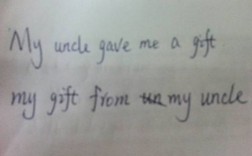 My uncle gave me a gift
my gift from my uncle